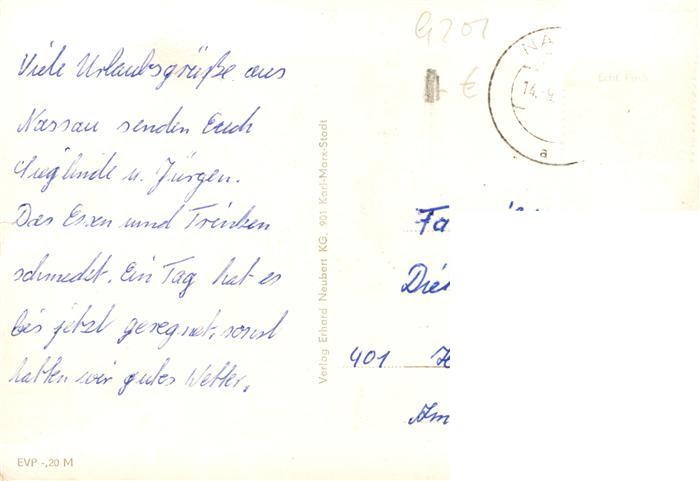 Viele Urlaubsgrüße aus
Nassau senden Euch
Sieglinde u. Jürgen.
Das Essen und Trinken
schmeckt. Ein Tag hat es
bis jetzt geregnet, sonst
hatten wir gutes Wetter.
EVP -,20 M
Verlag Erhard Neubert KG, 901 Karl-Marx-Stadt
G201
€
NA
14.-9.
a
Echt Foto
Fa
Die
401 H
Am